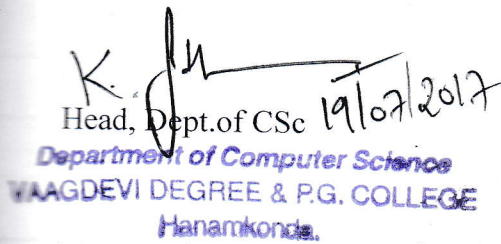 K.
19/07/2017
Head, Dept.of CSc
Department of Computer Science
VAAGDEVI DEGREE & P.G. COLLEGE
Hanamkonda.